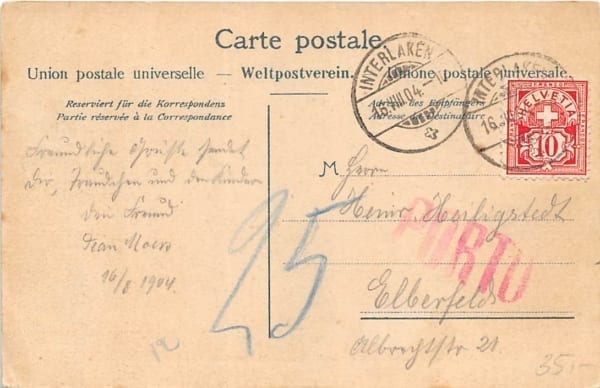 Carte postale.
Union postale universelle — Weltpostverein. — Unione postale universale
Reserviert für die Korrespondenz
Partie réservée à la Correspondance
INTERLAKEN
16.VIII.04.
INTERLAKEN
16.
FRANCO
HELVETIA
10
Freundliche Grüsse sendet
Dir, und den Kindern
Dein Freund
Jean
16/8 1904.
M
Herrn
Heinr. Heiligstedt
PORTO
Elberfeld
Albrechtstr 21.
25
35.-